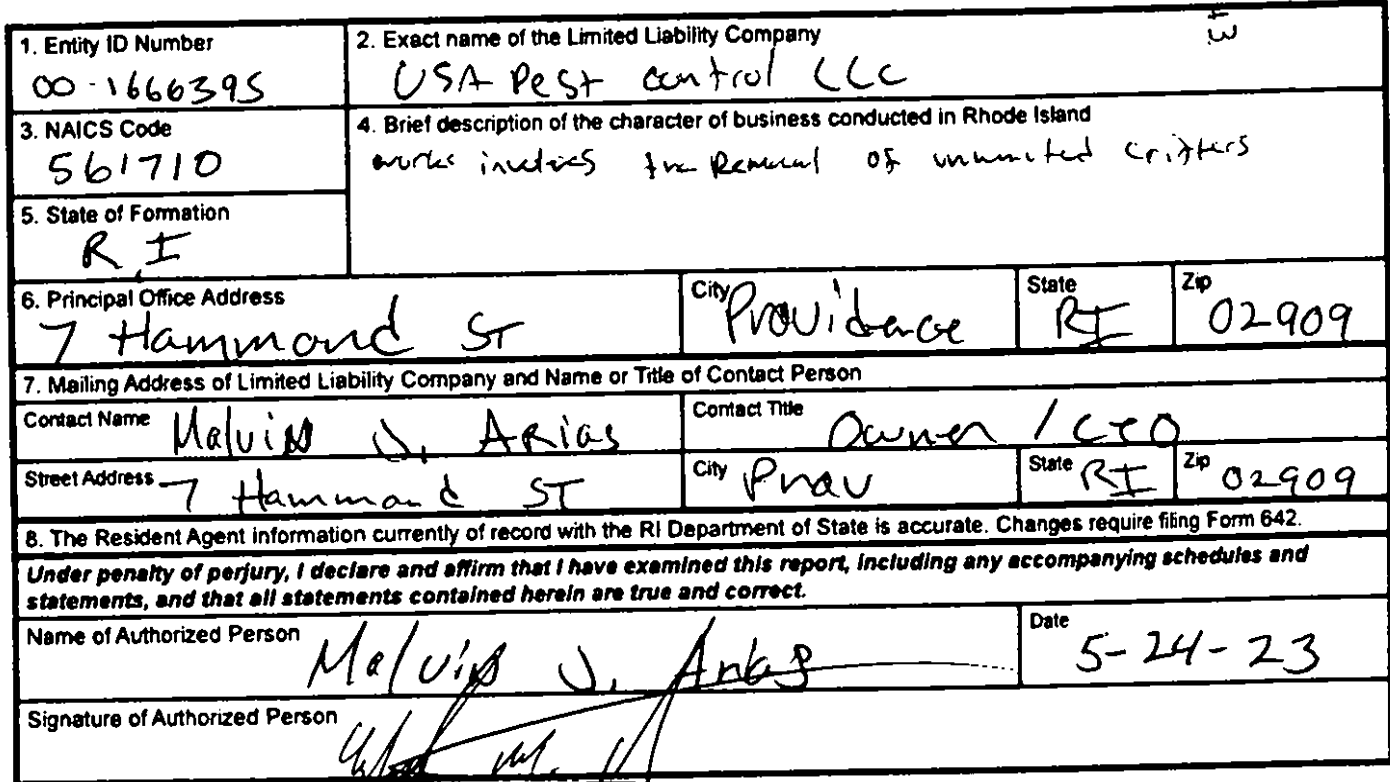 1. Entity ID Number
00-1666395
2. Exact name of the Limited Liability Company
USA Pest control LLC
3. NAICS Code
561710
4. Brief description of the character of business conducted in Rhode Island
works involves the Removal of unwanted critters
5. State of Formation
RI
6. Principal Office Address
7 Hammond ST
City Providence
State RI
Zip 02909
7. Mailing Address of Limited Liability Company and Name or Title of Contact Person
Contact Name Malvin J. Arias
Contact Title Owner / CEO
Street Address 7 Hammond ST
City Prov
State RI
Zip 02909
8. The Resident Agent information currently of record with the RI Department of State is accurate. Changes require filing Form 642.
Under penalty of perjury, I declare and affirm that I have examined this report, including any accompanying schedules and
statements, and that all statements contained herein are true and correct.
Name of Authorized Person Malvin J. Arias
Date 5-24-23
Signature of Authorized Person